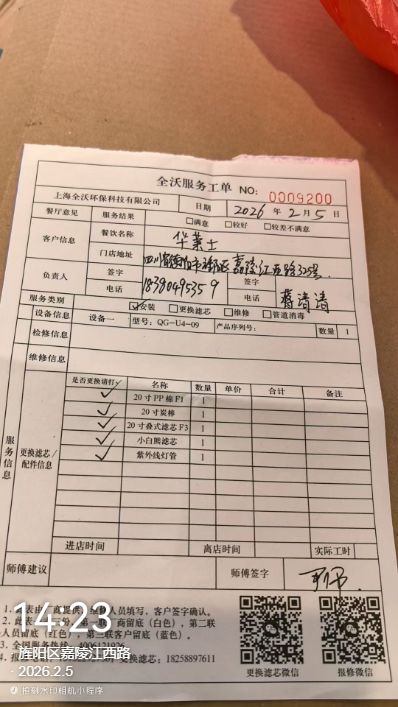 全沃服务工单 NO: 0009200
上海全沃环保科技有限公司 日期 2026 年 2 月 5 日
餐厅意见 服务结果 □满意 □较好 □较差不满意
客户信息 餐饮名称 华莱士
门店地址 四川 嘉陵江西路325号
负责人 签字 签字
电话 18390495359 电话 蒋清清
服务类别 ☑安装 □更换滤芯 □维修 □管道消毒
设备信息 设备一 型号: QG-U4-09 产品序列号: 数量 1
检修信息
维修信息
服务信息 更换滤芯/配件信息 是否更换请打√ 名称 数量 单价 合计 备注
✓ 20寸PP棒F1 1
✓ 20寸炭棒 1
✓ 20寸叠式滤芯F3 1
✓ 小白熊滤芯 1
✓ 紫外线灯管 1
进店时间 离店时间 实际工时
师傅建议 师傅签字
1. 此表由 人员填写，客户签字确认。
2. 此表 商留底（白色），第二联
人员留底（红色），第三联客户留底（蓝色）。
更换滤芯: 18258897611
更换滤芯微信 报修微信
14:23
旌阳区嘉陵江西路
2026.2.5
水印相机小程序